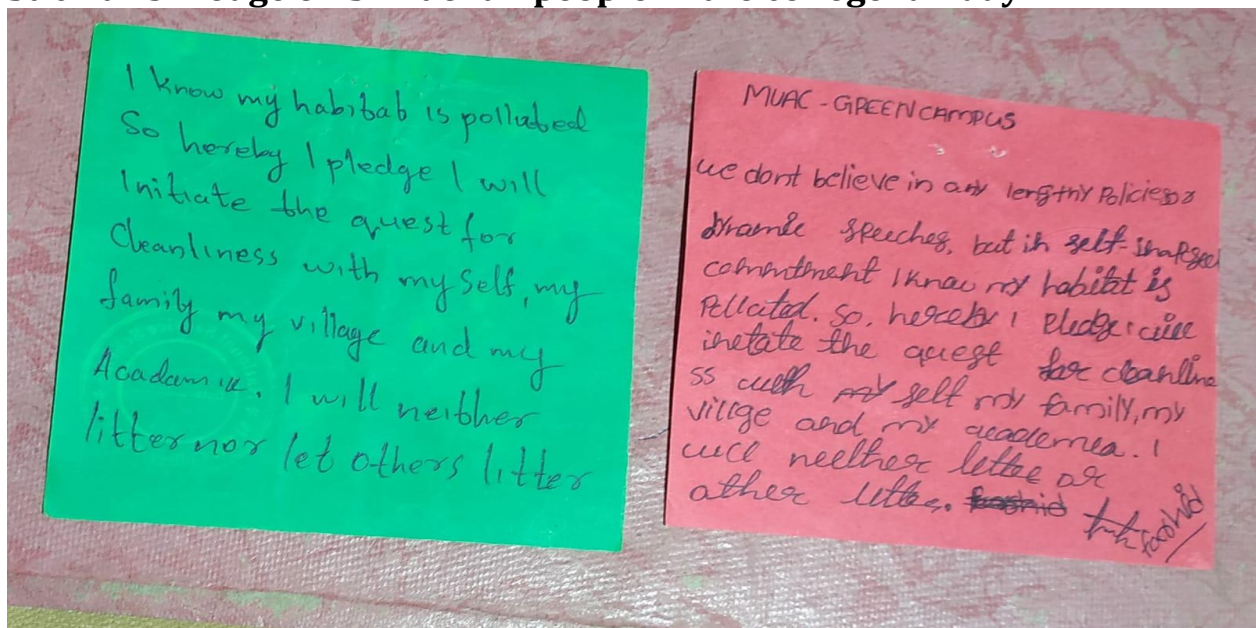 I know my habitab is pollubed
So hereby I pledge I will
Initiate the quest for
Cleanliness with my self, my
family my village and my
Acadamic. I will neither
litter nor let others litter
MUAC - GREEN CAMPUS
we dont believe in any lengthy Policies
speeches, but in self
commitment I know my habitat is
Pollcated. So, hereby I pledge I will
inetate the quest for cleanline
ss with my self my family, my
villge and my academea. I
will neither litter or
other litter.